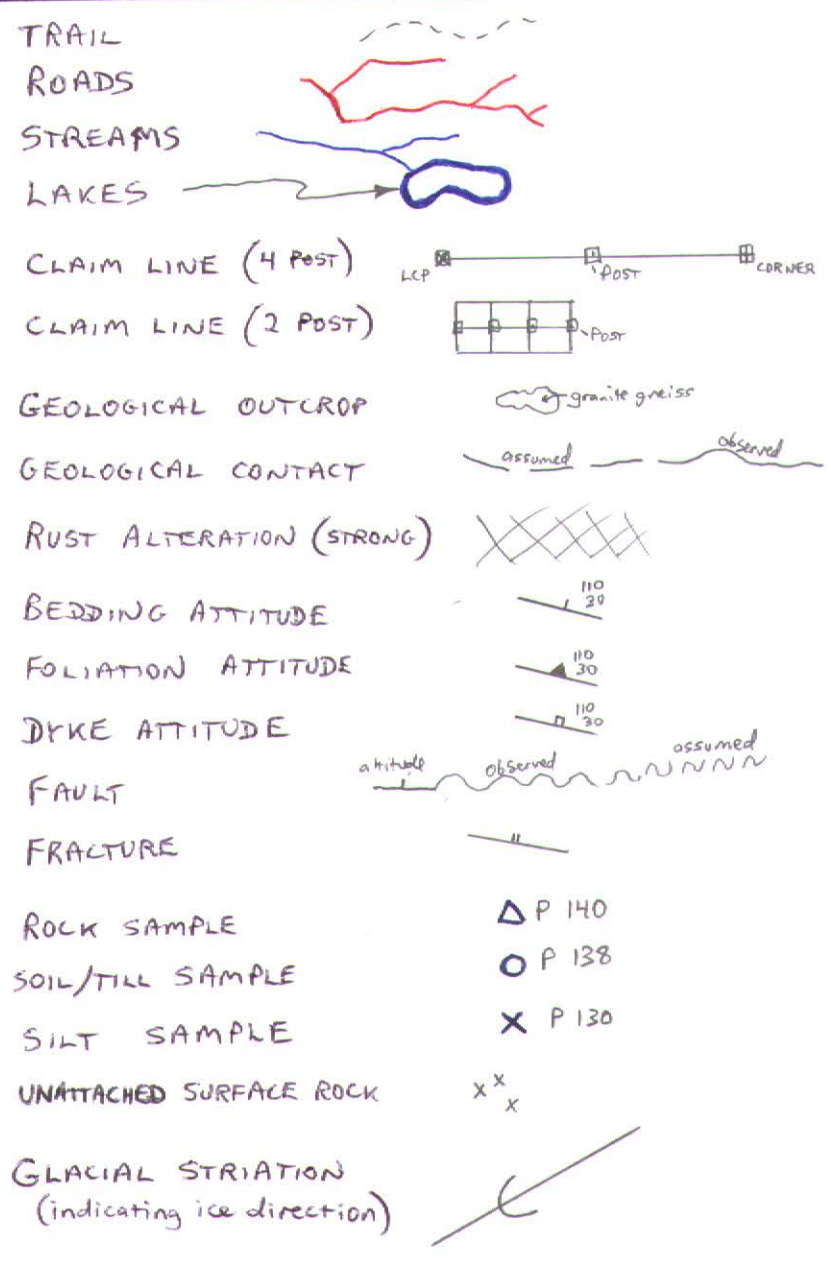 TRAIL
ROADS
STREAMS
LAKES
CLAIM LINE (4 POST) LCP POST CORNER
CLAIM LINE (2 POST) POST
GEOLOGICAL OUTCROP granite gneiss
GEOLOGICAL CONTACT assumed observed
RUST ALTERATION (STRONG)
BEDDING ATTITUDE 110 30
FOLIATION ATTITUDE 110 30
DYKE ATTITUDE 110 30
FAULT attitude observed assumed
FRACTURE
ROCK SAMPLE P 140
SOIL/TILL SAMPLE P 138
SILT SAMPLE P 130
UNATTACHED SURFACE ROCK
GLACIAL STRIATION
(indicating ice direction)